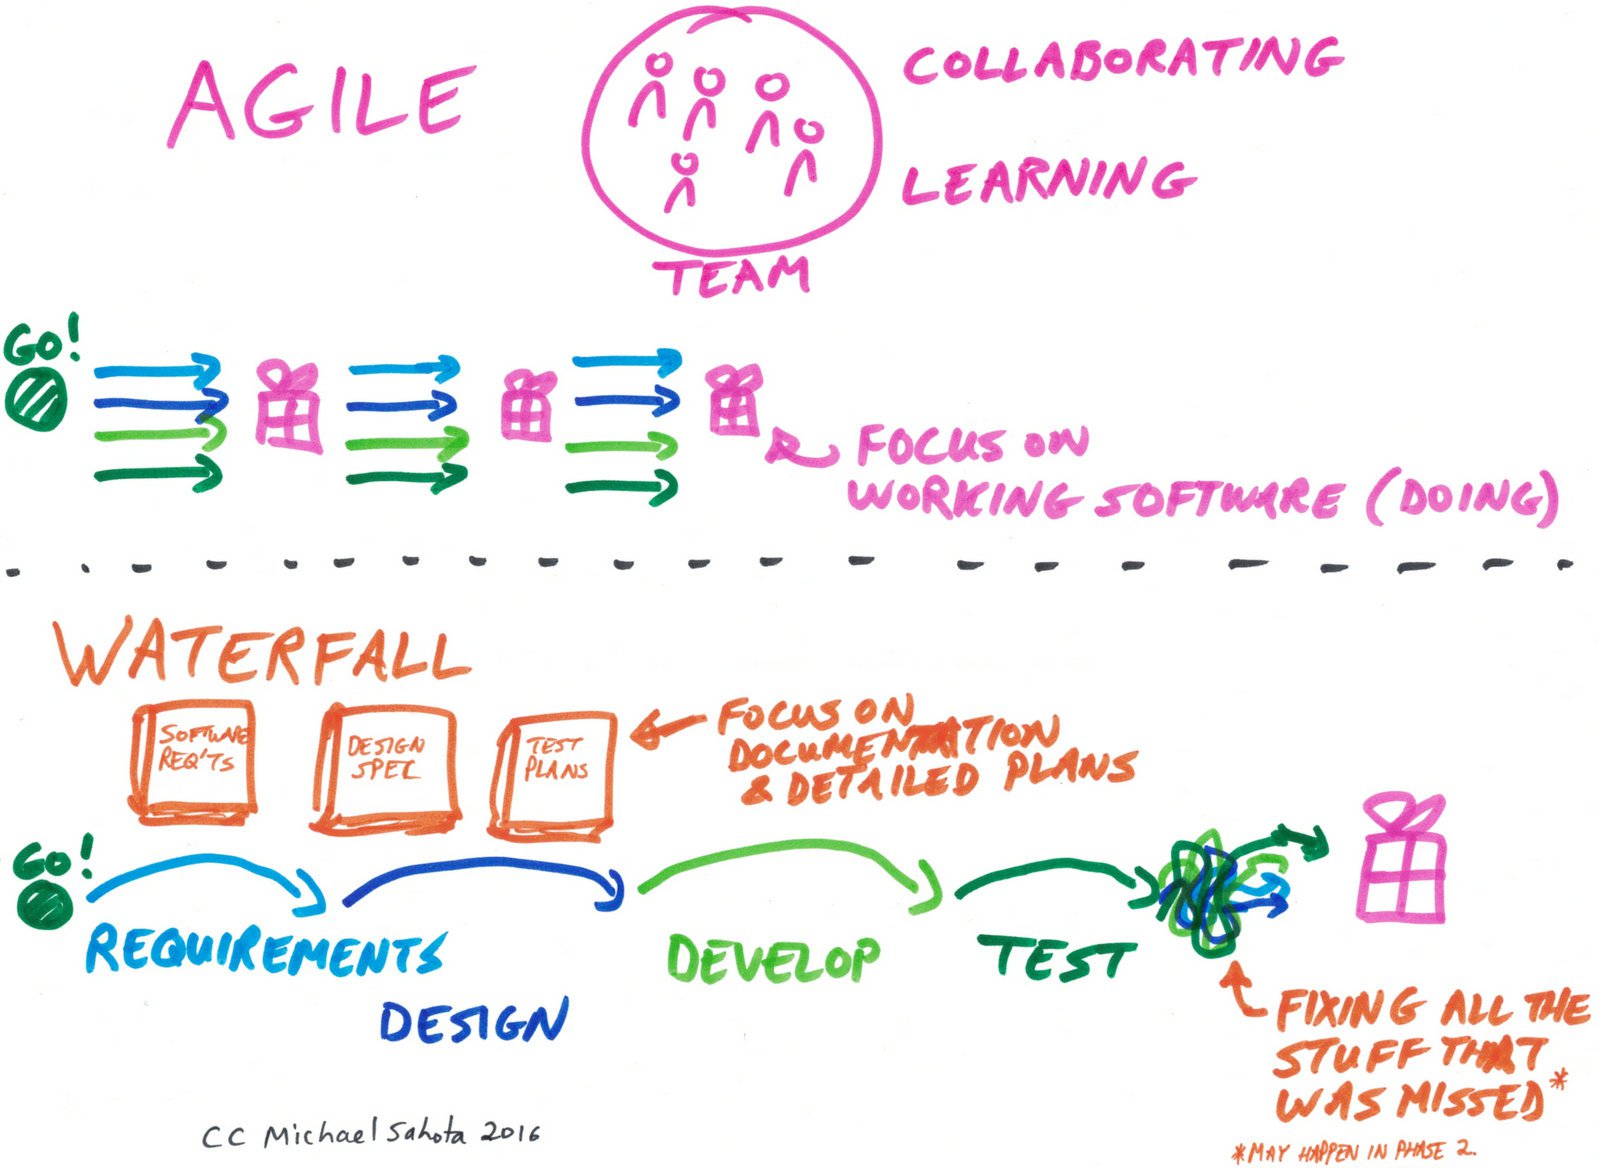 AGILE
COLLABORATING
LEARNING
TEAM
GO!
FOCUS ON
WORKING SOFTWARE (DOING)
WATERFALL
SOFTWARE
REQ'TS
DESIGN
SPEC
TEST
PLANS
FOCUS ON
DOCUMENTATION
& DETAILED PLANS
GO!
REQUIREMENTS
DESIGN
DEVELOP
TEST
FIXING ALL THE
STUFF THAT
WAS MISSED*
*MAY HAPPEN IN PHASE 2.
CC Michael Sahota 2016